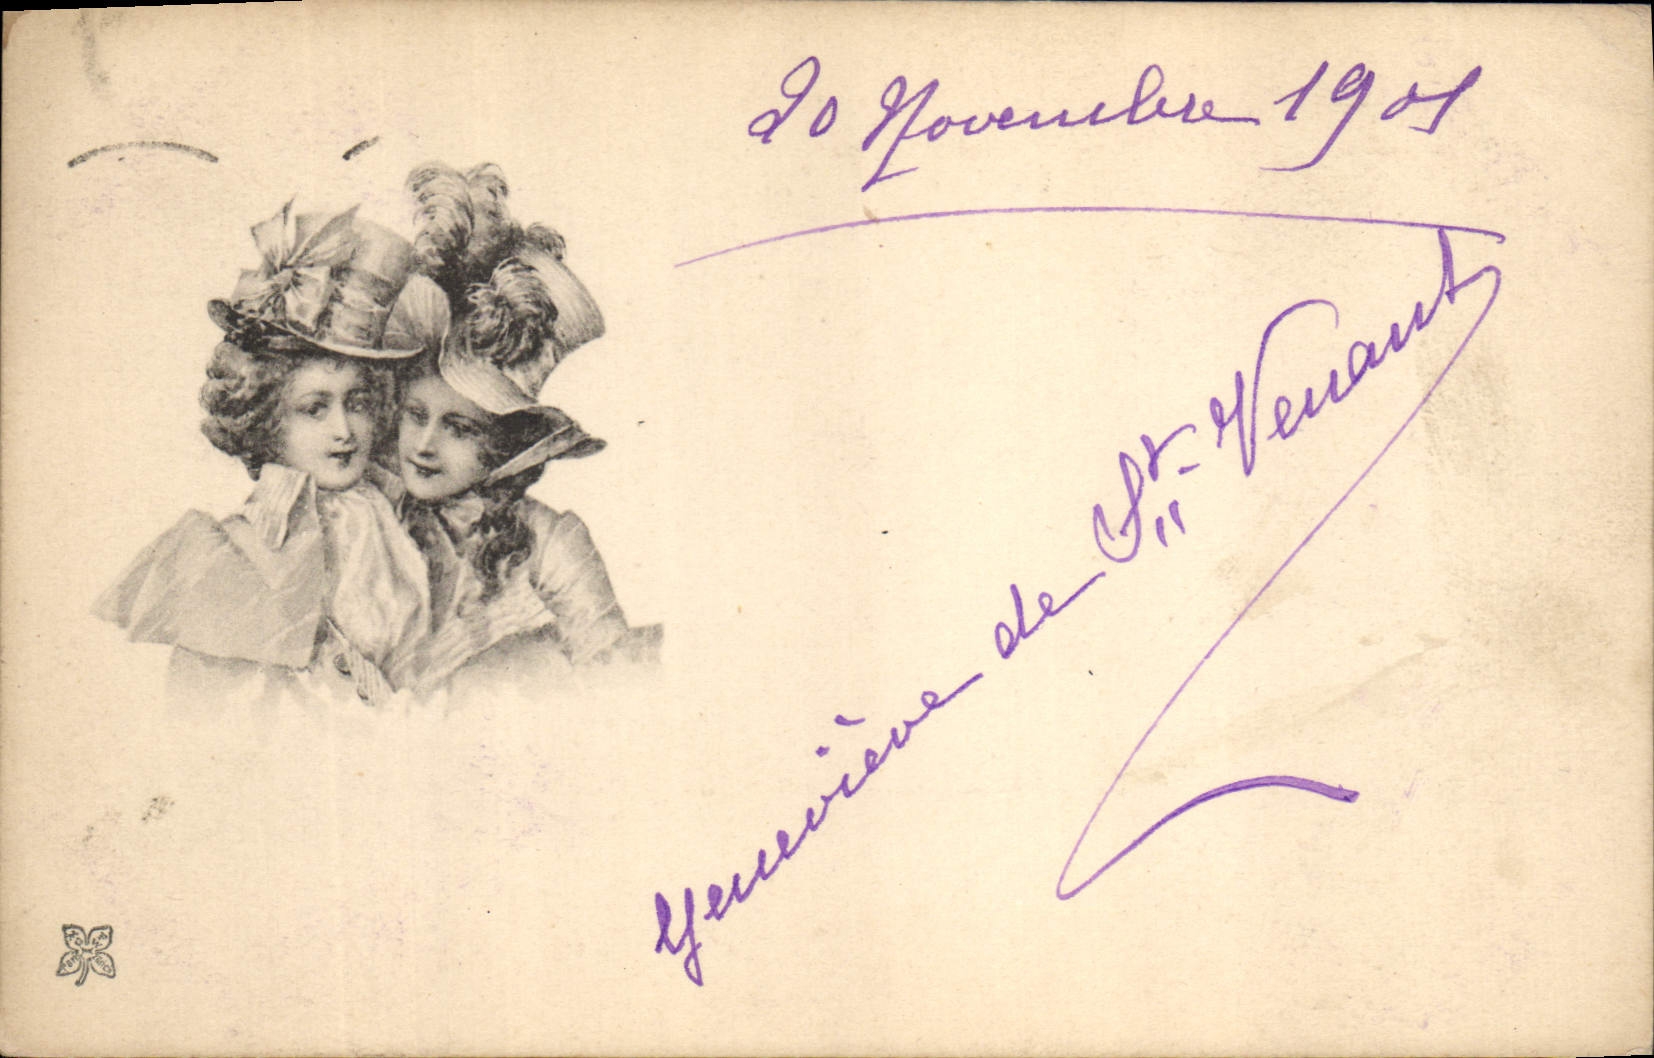 20 Novembre 1901
Geneviève de St. Venant